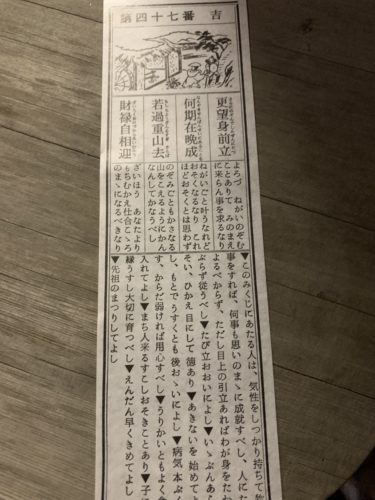 第四十七番 吉
更望身前立
何期在晩成
若過重山去
財禄自相迎
よろづ ねがいのぞむ
ことありて みのまえ
に来らん事を求るなり
ねがいごと叶うなれど
おそくなるなり これ
ほどおそくとは思わず
のぞみごともかさなる
山をこえるようにかん
なんしてかなうべし
ざいほう あなたより
もちむかえ仕合こころ
のまゝになるべきなり
▼このみくじにあたる人は、気性をしっかり持ちて
事をすれば、何事も思いのまゝに成就すべし、人にた
よるべからず、ただし目上の引立あればわが身をた
ぶらず従うべし▼たび立おおいによし▼いゝぶんあ
そい、ひかえ目にして徳あり▼あきないを始めて
し、もとでうすくとも後おゝいによし▼病気本ぶく
す、からだ弱ければ用心すべし▼うりかいともよく
入れてよし▼まち人来るすこしおそきことあり▼子に
縁うすし大切に育つべし▼えんだん早くきめてよし
▼先祖のまつりしてよし